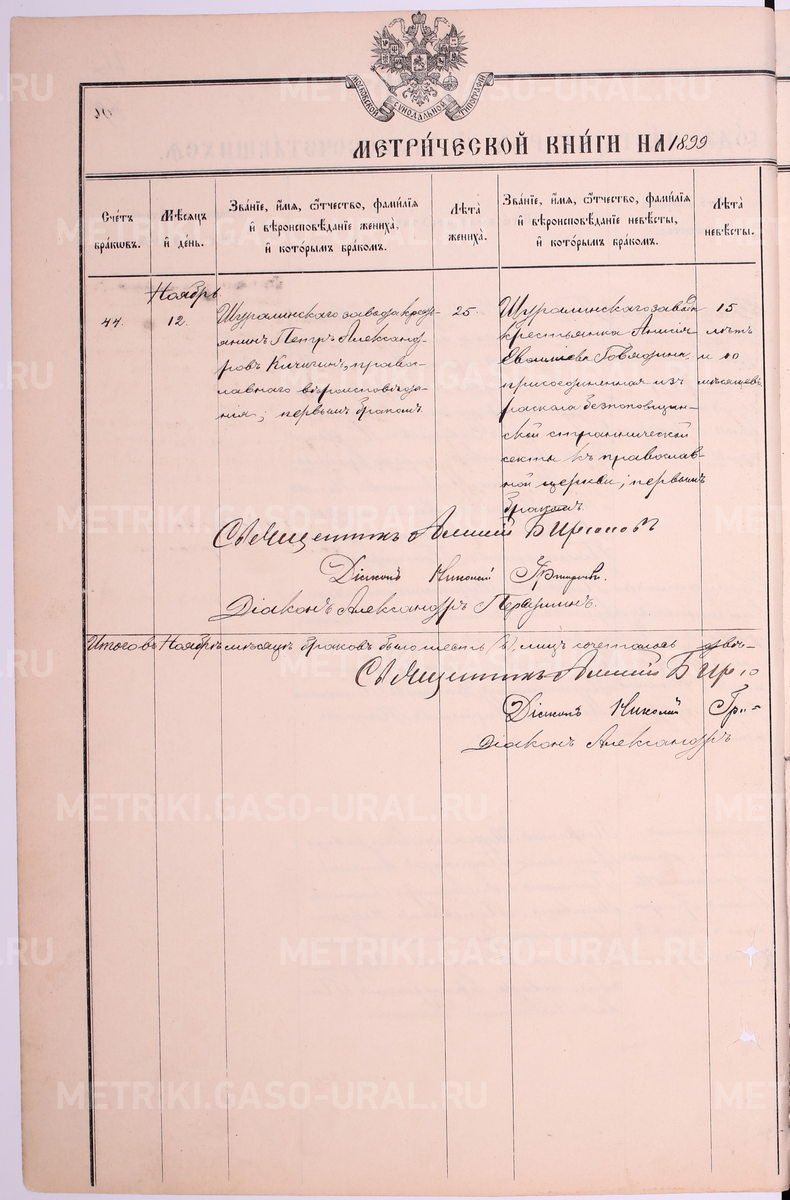 МОСКОВСКОЙ СѴНОДАЛЬНОЙ ТИПОГРАФІИ
МЕТРИ́ЧЕСКОЙ КНИ́ГИ НА 1899
Сче́тъ бра́кωвъ.
Мѣ́сяцъ и҆ де́нь.
Зва́нїе, и҆́мя, ѻ҆́тчество, фами́лїя
и҆ вѣроисповѣ́данїе жениха̀,
и҆ кото́рымъ бра́комъ.
Лѣ́та жениха̀.
Зва́нїе, и҆́мя, ѻ҆́тчество, фами́лїя
и҆ вѣроисповѣ́данїе невѣ́сты,
и҆ кото́рымъ бра́комъ.
Лѣ́та невѣ́сты.
Ноябрь
44.
12.
Шуралинскаго завода кресть-
янинъ Петръ Александ-
ровъ Кичигинъ, право-
славнаго вѣроисповѣда-
нія; первымъ бракомъ.
25.
Шуралинскаго завода
крестьянка
Говядина,
присоединенная изъ
раскола безпоповщин-
ской страннической
секты къ православ-
ной церкви; первымъ
бракомъ.
15
лѣтъ
и 10
мѣсяцевъ
Священникъ
Діаконъ Николай
Діаконъ Александръ
Итого въ Ноябрѣ мѣсяцѣ браковъ было шесть (6), лицъ сочеталось
Священникъ
Діаконъ Николай
Діаконъ Александръ
METRIKI.GASO-URAL.RU